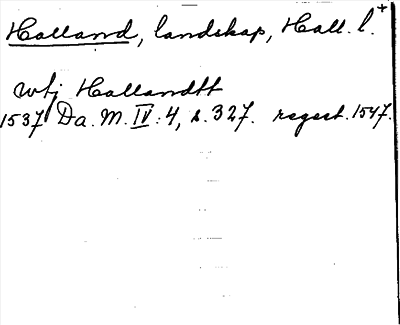 Halland, landskap, Hall. l. +
utj Hallandtt
1537 Da. M. IV: 4, s. 327. regest. 1547.